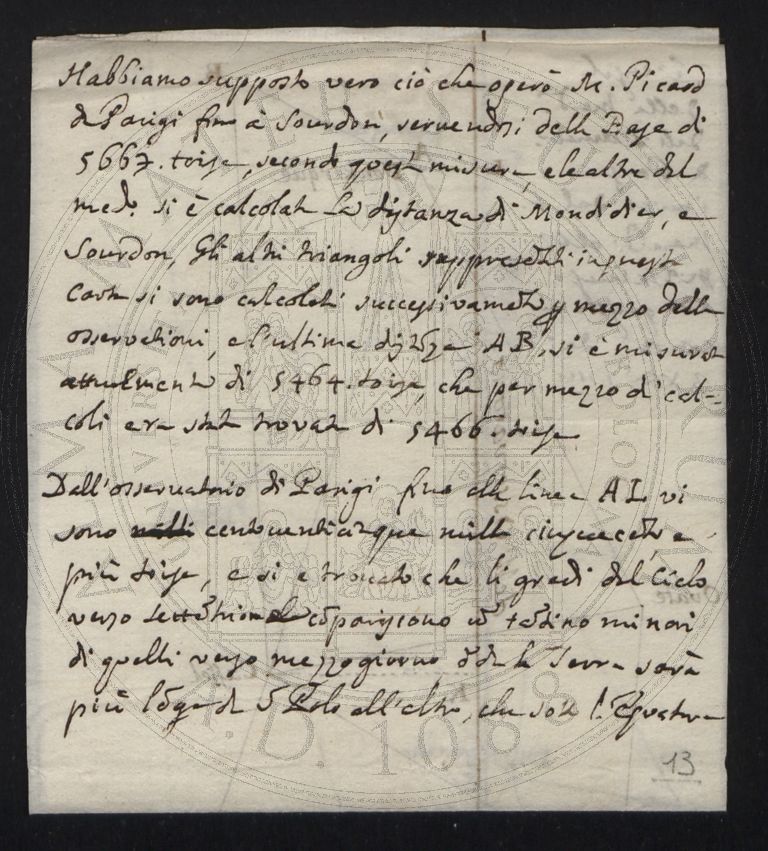 Habbiamo supposto vero ciò che operò M. Picard
da Parigi fino à Sourdon, servendosi della Base di
5663. toise, secondo questa misura, e le altre del
med.º si è calcolata la distanza di Mondidier, e
Sourdon, Gli altri triangoli in questa
Carta si sono calcolati successivamēte p mezzo delle
osservationi, e l'ultima distāza AB, si è misurata
attualmente di 5464. toise, che per mezzo di cal-
coli era stata trovata di 5466. toise
Dall'osservatorio di Parigi fino alla linea AL vi
sono centoventicinque mille cinquecēto, e
più toise, e si è trovato che li gradi del Cielo
verso settētrionale cōpariscono un tātino minori
di quelli verso mezzogiorno ōde la Terra sarà
più lōga da ū Polo all'altro, che sotto l'Equatore
13